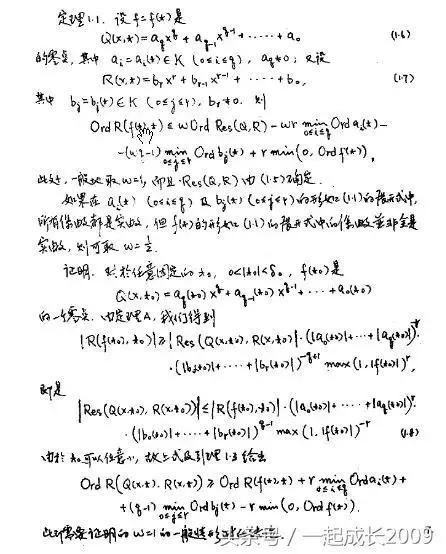 定理1.1. 设 f=f(t) 是
Q(x,t)=a_q x^q+a_{q-1} x^{q-1}+……+a_0 (1.6)
的零点, 其中 a_i=a_i(t)∈K (0≤i≤q), a_q≠0; 又设
R(x,t)=b_r x^r+b_{r-1} x^{r-1}+……+b_0, (1.7)
其中 b_j=b_j(t)∈K (0≤j≤r), b_r≠0. 则
Ord R(f(t),t) ≤ w Ord Res(Q,R) - wr min_{0≤i≤q} Ord a_i(t) -
-(wq-1) min_{0≤j≤r} Ord b_j(t) + r min(0, Ord f(t)),
此处, 一般地取 w=1, 而且 Res(Q,R) 由(1.5)确定.
如果在 a_i(t) (0≤i≤q) 及 b_j(t) (0≤j≤r) 的形如(1.1)的展开式中,
所有系数都是实数, 但 f(t)的形如(1.1)的展开式中的系数并非全是
实数, 则可取 w=½.
证明. 对於任意固定的 t_0, 0<|t_0|<δ_0, f(t_0)是
Q(x,t_0)=a_q(t_0)x^q+a_{q-1}(t_0)x^{q-1}+……+a_0(t_0)
的一个零点. 由定理A, 我们得到
|R(f(t_0),t_0)|≥|Res(Q(x,t_0),R(x,t_0))|·(|a_0(t_0)|+……+|a_q(t_0)|)^{-r}·
·(|b_0(t_0)|+……+|b_r(t_0)|)^{-q+1} max(1,|f(t_0)|)^r,
即是
|Res(Q(x,t_0),R(x,t_0))|≤|R(f(t_0),t_0)|·(|a_0(t_0)|+……+|a_q(t_0)|)^r·
·(|b_0(t_0)|+……+|b_r(t_0)|)^{q-1} max(1,|f(t_0)|)^{-r} (1.8)
由於 t_0 可以任意小, 故上式及引理1.3给出
Ord R(Q(x,t),R(x,t)) ≥ Ord R(f(t),t) + r min_{0≤i≤q} Ord a_i(t) +
+(q-1) min_{0≤j≤r} Ord b_j(t) - r min(0, Ord f(t)).
此即需要证明的 w=1 的一般情形
头条号 / 一起成长2009